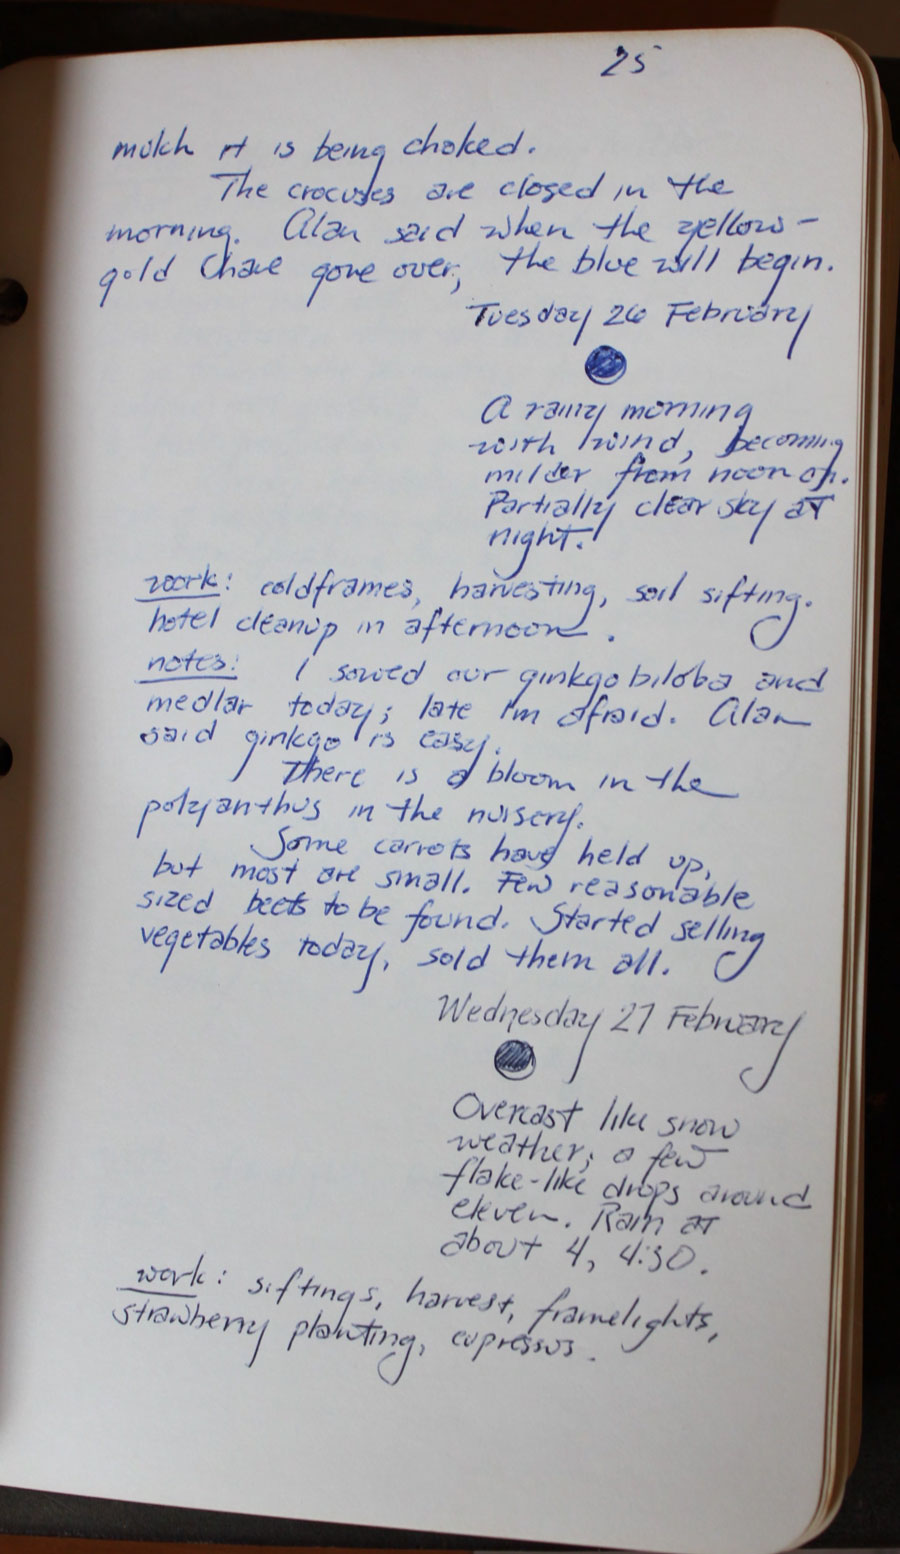 25
mulch it is being choked.
The crocuses are closed in the
morning. Alan said when the yellow-
gold have gone over, the blue will begin.
Tuesday 26 February
A rainy morning
with wind, becoming
milder from noon on.
Partially clear sky at
night.
work: coldframes, harvesting, soil sifting.
hotel cleanup in afternoon.
notes: I sowed our ginkgo biloba and
medlar today; late I'm afraid. Alan
said ginkgo is easy.
There is a bloom in the
polyanthus in the nursery.
Some carrots have held up,
but most are small. Few reasonable
sized beets to be found. Started selling
vegetables today, sold them all.
Wednesday 27 February
Overcast like snow
weather; a few
flake-like drops around
eleven. Rain at
about 4, 4:30.
work: siftings, harvest, framelights,
strawberry planting, cupressus.